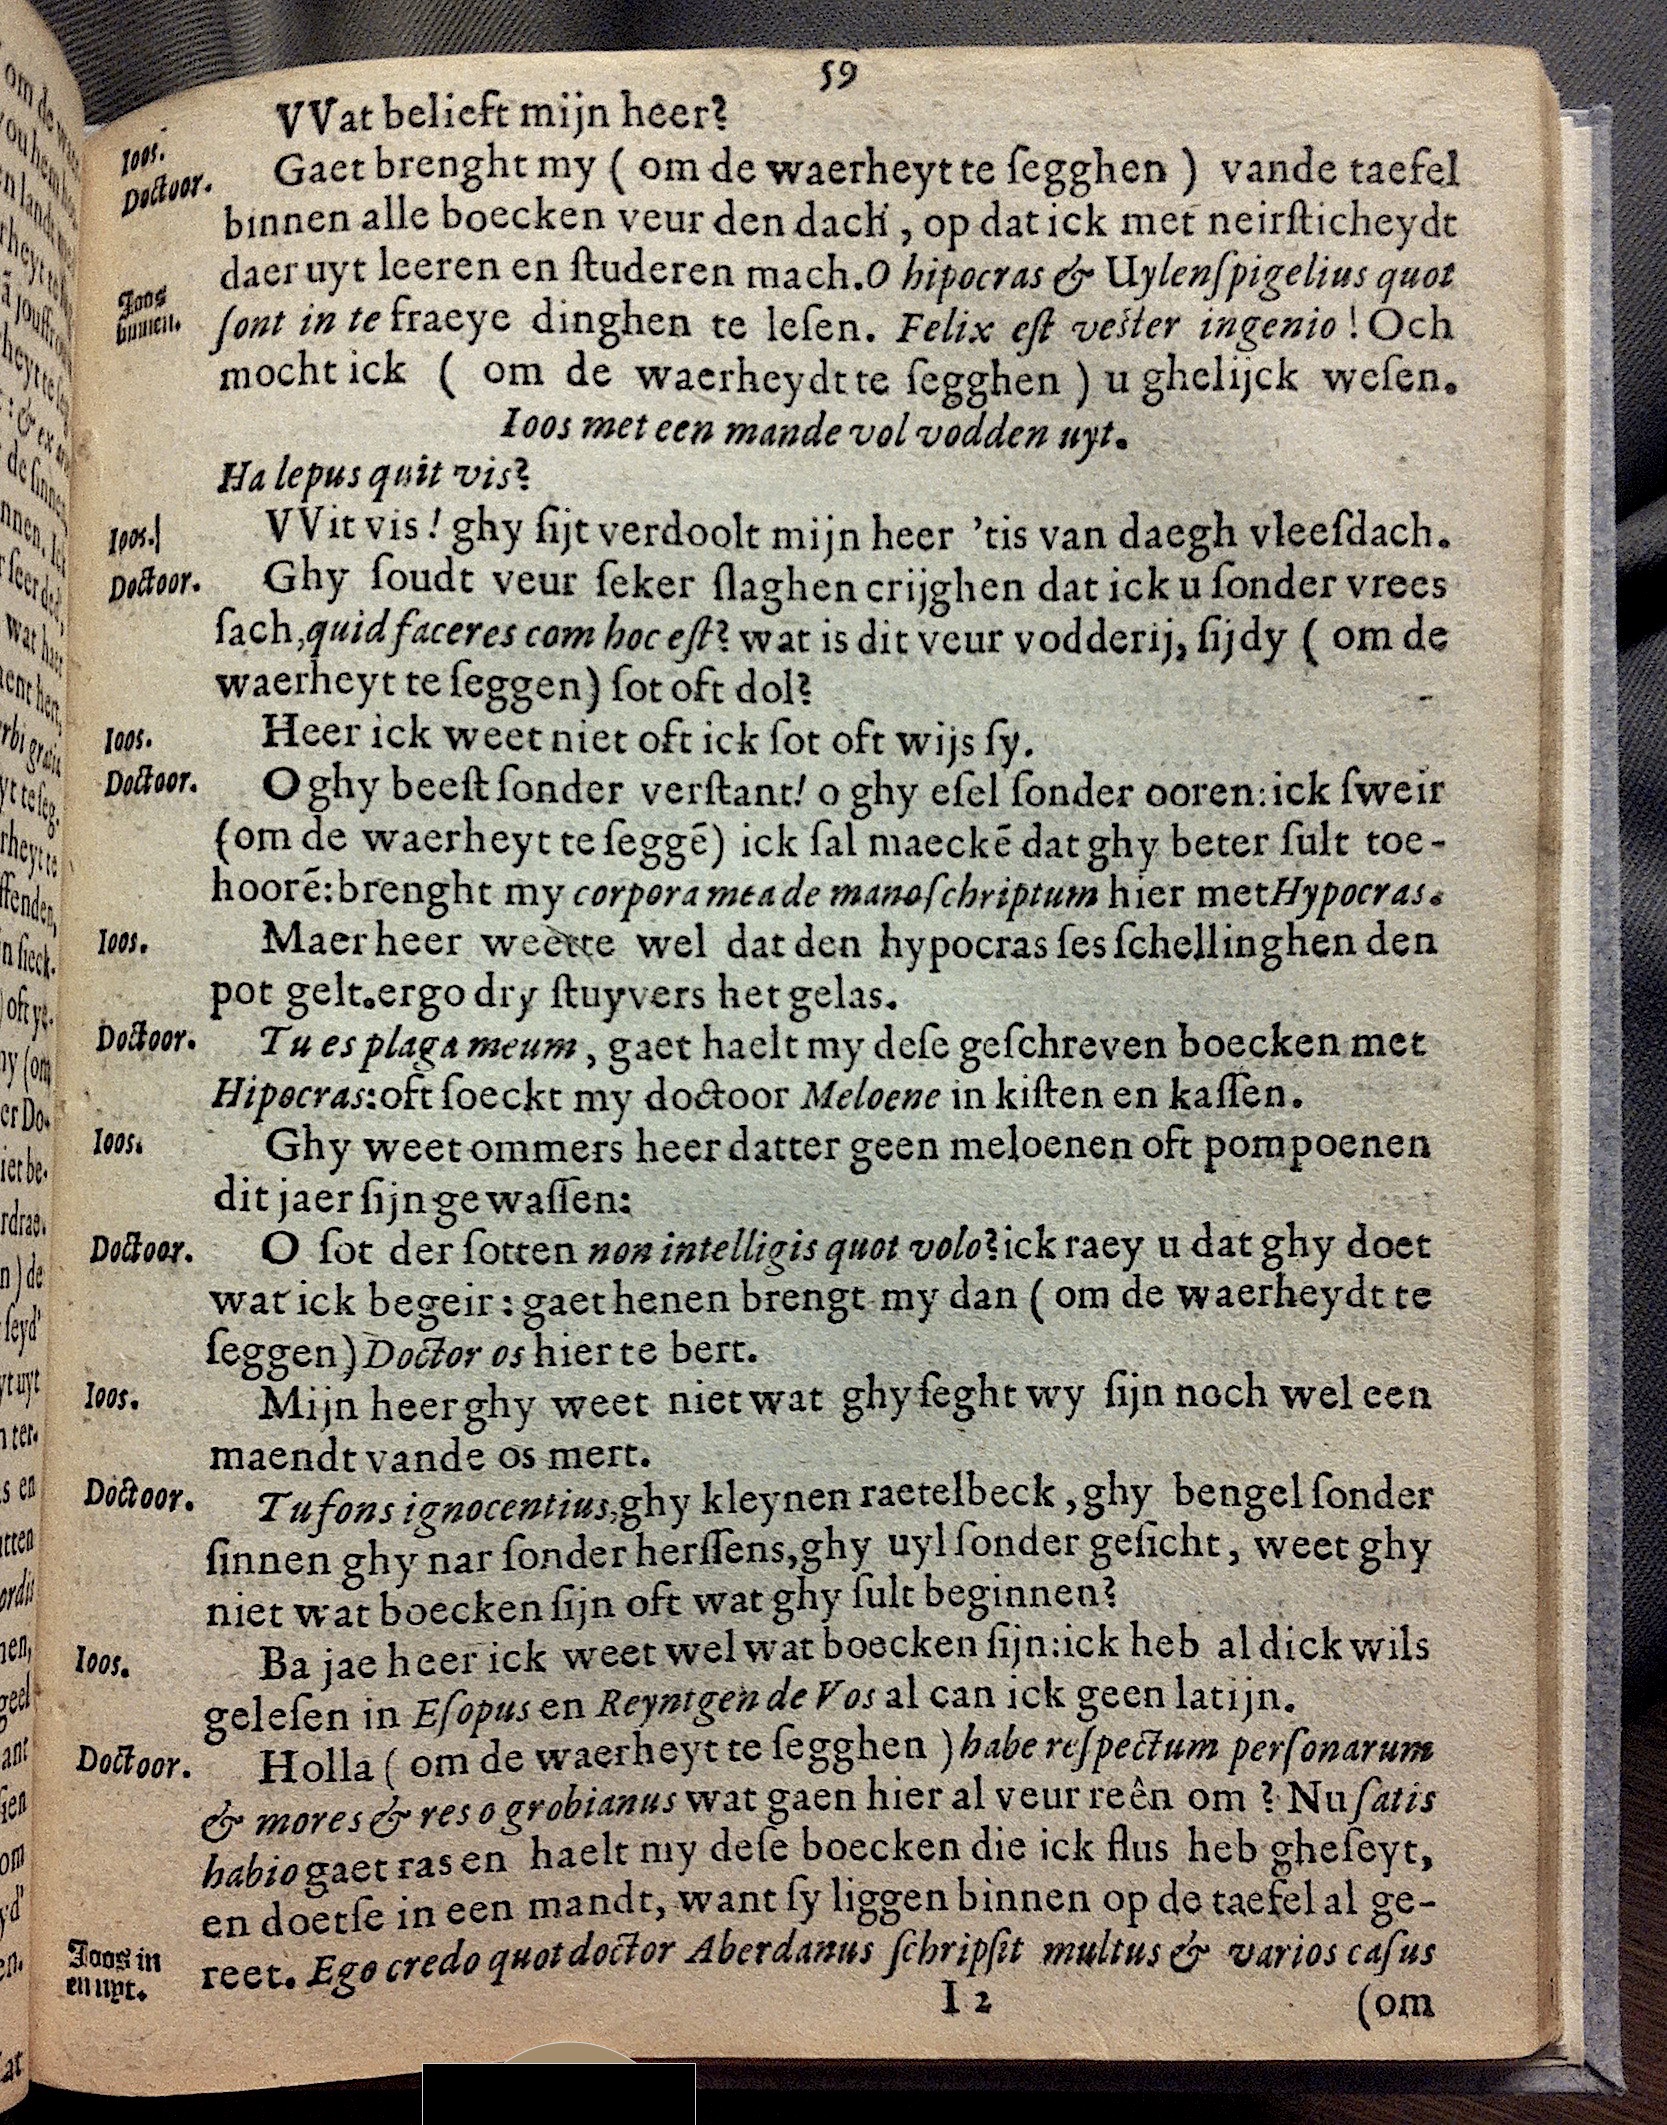 59
Ioos. VVat belieft mijn heer?
Doctoor. Gaet brenght my ( om de waerheyt te ſegghen ) vande taefel
binnen alle boecken veur den dach , op dat ick met neirſticheydt
daer uyt leeren en ſtuderen mach. O hipocras & Uylenſpigelius quot
Joos binnen. ſont in te fraeye dinghen te leſen. Felix eſt veſter ingenio ! Och
mocht ick ( om de waerheydt te ſegghen ) u ghelijck weſen.
Ioos met een mande vol vodden uyt.
Ha lepus quit vis?
Ioos. VVit vis ! ghy ſijt verdoolt mijn heer ’tis van daegh vleeſdach.
Doctoor. Ghy ſoudt veur ſeker ſlaghen crijghen dat ick u ſonder vrees
ſach, quid faceres com hoc eſt? wat is dit veur vodderij, ſijdy ( om de
waerheyt te ſeggen) ſot oft dol?
Ioos. Heer ick weet niet oft ick ſot oft wijs ſy.
Doctoor. O ghy beeſt ſonder verſtant! o ghy eſel ſonder ooren: ick ſweir
(om de waerheyt te ſeggē) ick ſal maeckē dat ghy beter ſult toe-
hoorē: brenght my corpora mea de manoſchriptum hier met Hypocras.
Ioos. Maer heer weette wel dat den hypocras ſes ſchellinghen den
pot gelt. ergo dry ſtuyvers het gelas.
Doctoor. Tu es plaga meum , gaet haelt my deſe geſchreven boecken met
Hipocras: oft ſoeckt my doctoor Meloene in kiſten en kaſſen.
Ioos. Ghy weet ommers heer datter geen meloenen oft pompoenen
dit jaer ſijn gewaſſen:
Doctoor. O ſot der ſotten non intelligis quot volo? ick raey u dat ghy doet
wat ick begeir : gaet henen brengt my dan ( om de waerheydt te
ſeggen) Doctor os hier te bert.
Ioos. Mijn heer ghy weet niet wat ghy ſeght wy ſijn noch wel een
maendt vande os mert.
Doctoor. Tu fons ignocentius, ghy kleynen raetelbeck , ghy bengel ſonder
ſinnen ghy nar ſonder herſſens, ghy uyl ſonder geſicht, weet ghy
niet wat boecken ſijn oft wat ghy ſult beginnen?
Ioos. Ba jae heer ick weet wel wat boecken ſijn: ick heb al dick wils
geleſen in Eſopus en Reyntgen de Vos al can ick geen latijn.
Doctoor. Holla ( om de waerheyt te ſegghen ) habe reſpectum perſonarum
& mores & res o grobianus wat gaen hier al veur reên om ? Nu ſatis
habio gaet ras en haelt my deſe boecken die ick flus heb gheſeyt,
en doetſe in een mandt, want ſy liggen binnen op de taefel al ge-
Joos in en uyt. reet. Ego credo quot doctor Aberdanus ſchripſit multus & varios caſus
I 2 (om